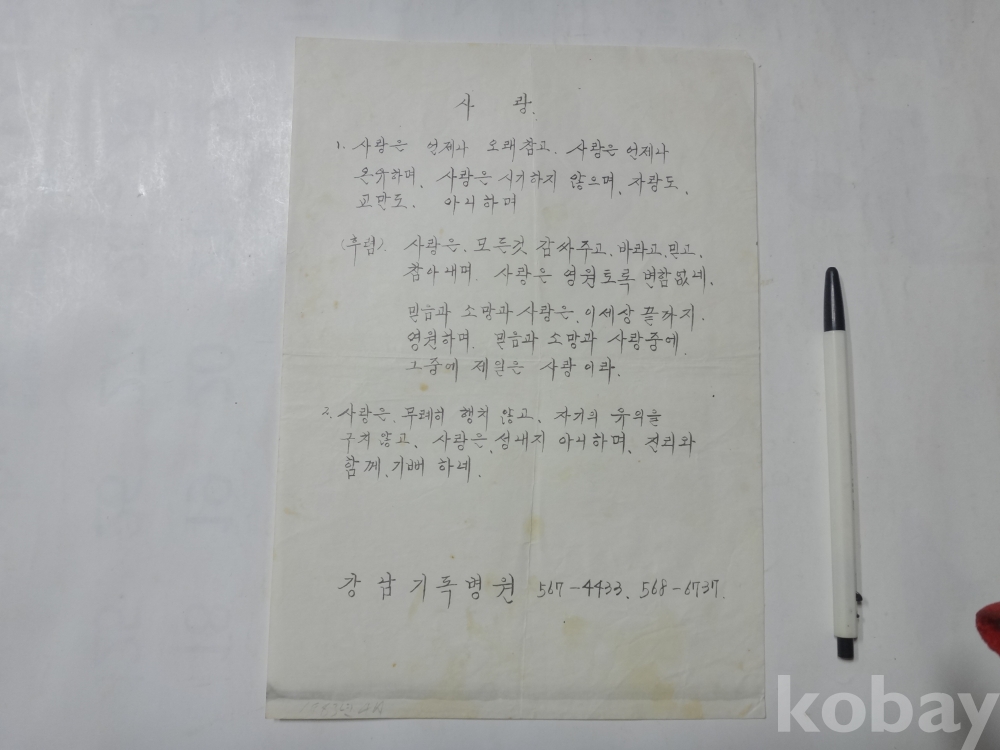 사 랑.
1. 사랑은 언제나 오래참고. 사랑은 언제나
온유하며, 사랑은 시기하지 않으며, 자랑도,
교만도, 아니하며
(후렴). 사랑은, 모든것 감싸주고, 바라고, 믿고,
참아내며, 사랑은 영원토록 변함없네,
믿음과 소망과 사랑은, 이세상 끝까지.
영원하며, 믿음과 소망과 사랑중에,
그중에 제일은 사랑이라.
2. 사랑은, 무례히 행치 않고, 자기의 유의를
구치 않고, 사랑은, 성내지 아니하며, 진리와
함께, 기뻐 하네.
강남기독병원 567-4433, 568-6737.
kobay